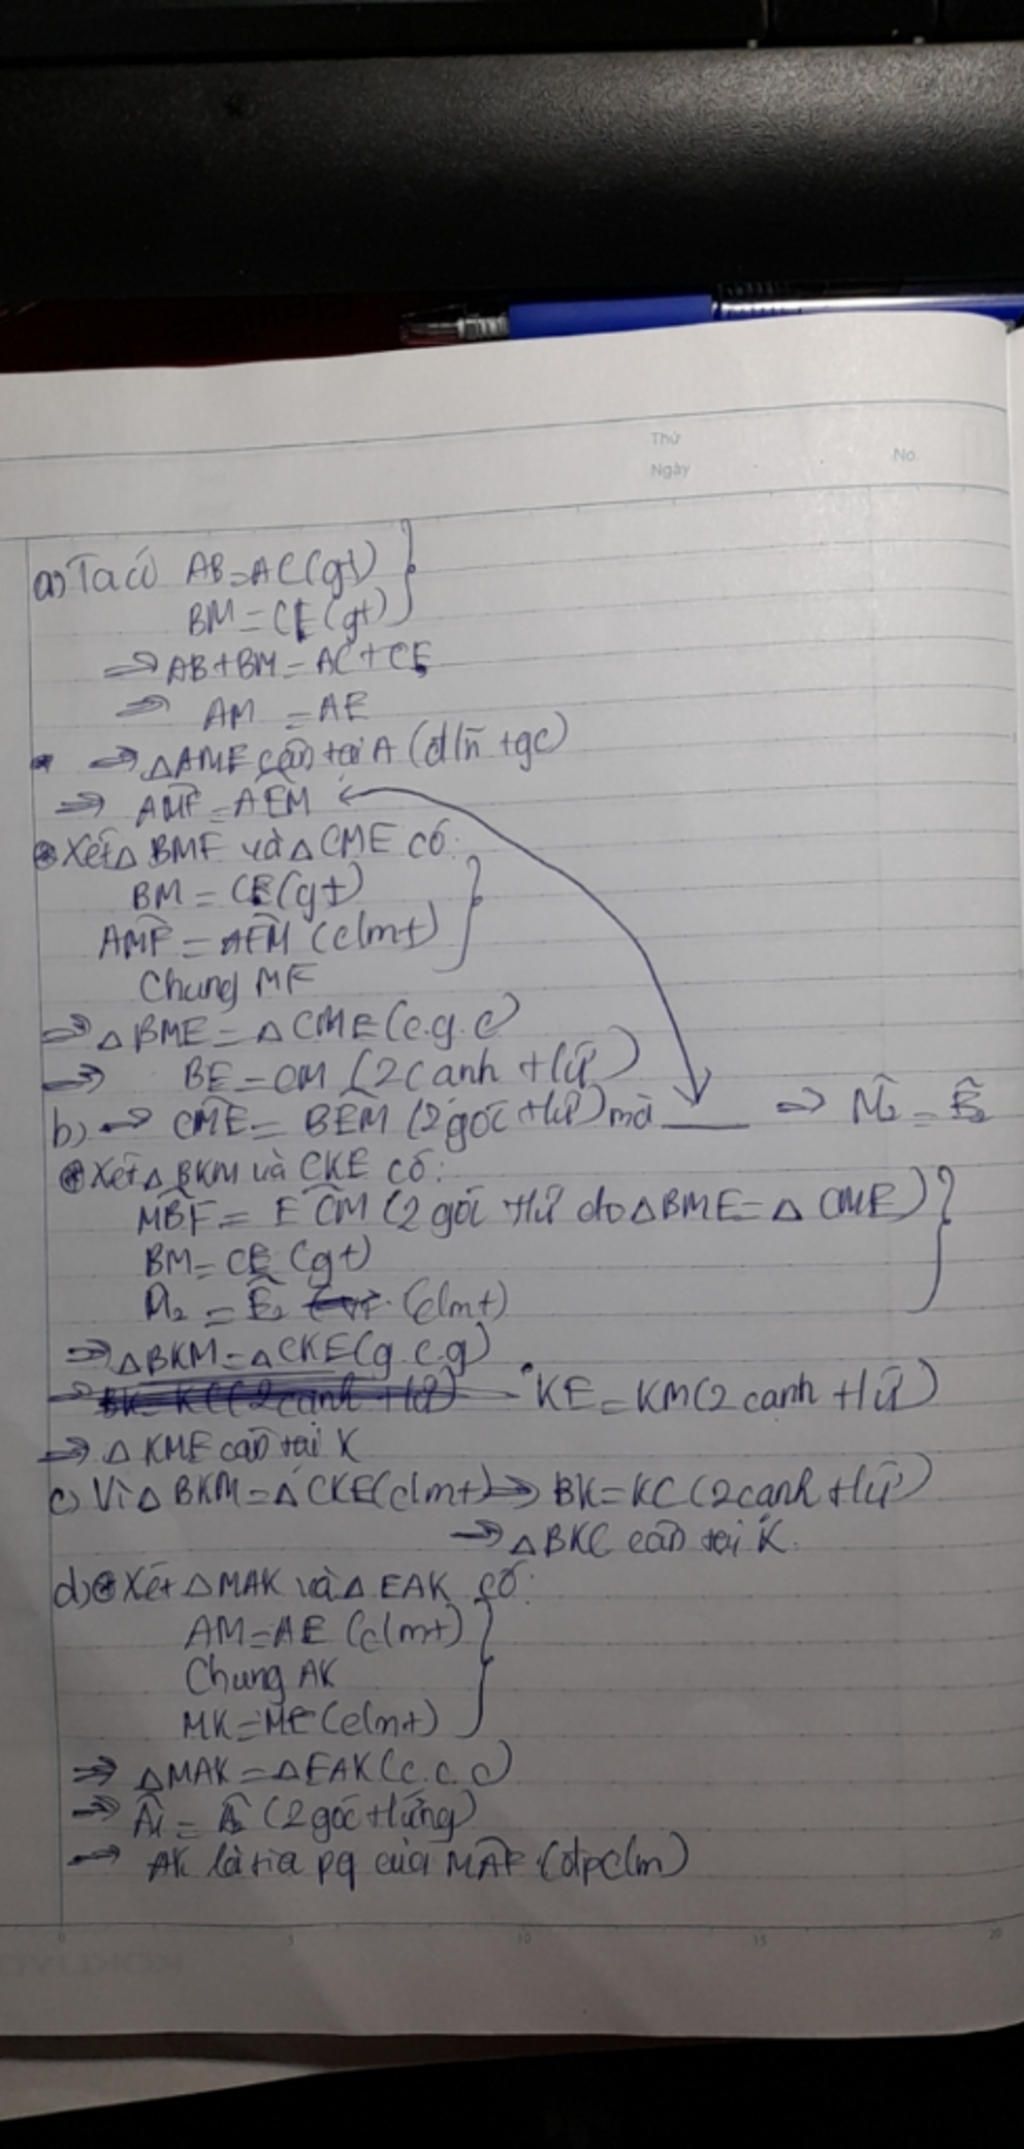 Thứ
Ngày
No.
a) Ta có AB=AC(gt)
BM=CE(gt)
⇒ AB+BM=AC+CE
⇒ AM = AE
⇒ △AME cân tại A (đ/n tgc)
⇒ AME = AEM
Xét △ BME và △ CME có:
BM = CE(gt)
AME = AEM (c/mt)
Chung ME
⇒ △ BME = △ CME (c.g.c)
⇒ BE=CM (2 cạnh t/ứ)
b) ⇒ CME = BEM (2 góc t/ứ) mà ⇒ M₂ = E₂
Xét △ BKM và CKE có:
MBE = ECM (2 góc t/ứ do △BME=△ CME)
BM=CE (gt)
M₂ = E₂ (c/mt)
⇒ △BKM=△CKE(g.c.g)
⇒ BK=KC(2 cạnh t/ứ) KE=KM(2 cạnh t/ứ)
⇒ △ KME cân tại K
c) Vì △ BKM=△ CKE(c/mt) ⇒ BK=KC (2 cạnh t/ứ)
⇒ △BKC cân tại K.
d) Xét △MAK và △ EAK có:
AM=AE (c/mt)
Chung AK
MK=ME (c/mt)
⇒ △MAK=△EAK(c.c.c)
⇒ A₁ = A₂ (2 góc t/ứng)
⇒ AK là tia pg của MAE (đpc/m)
0 5 10 15 20